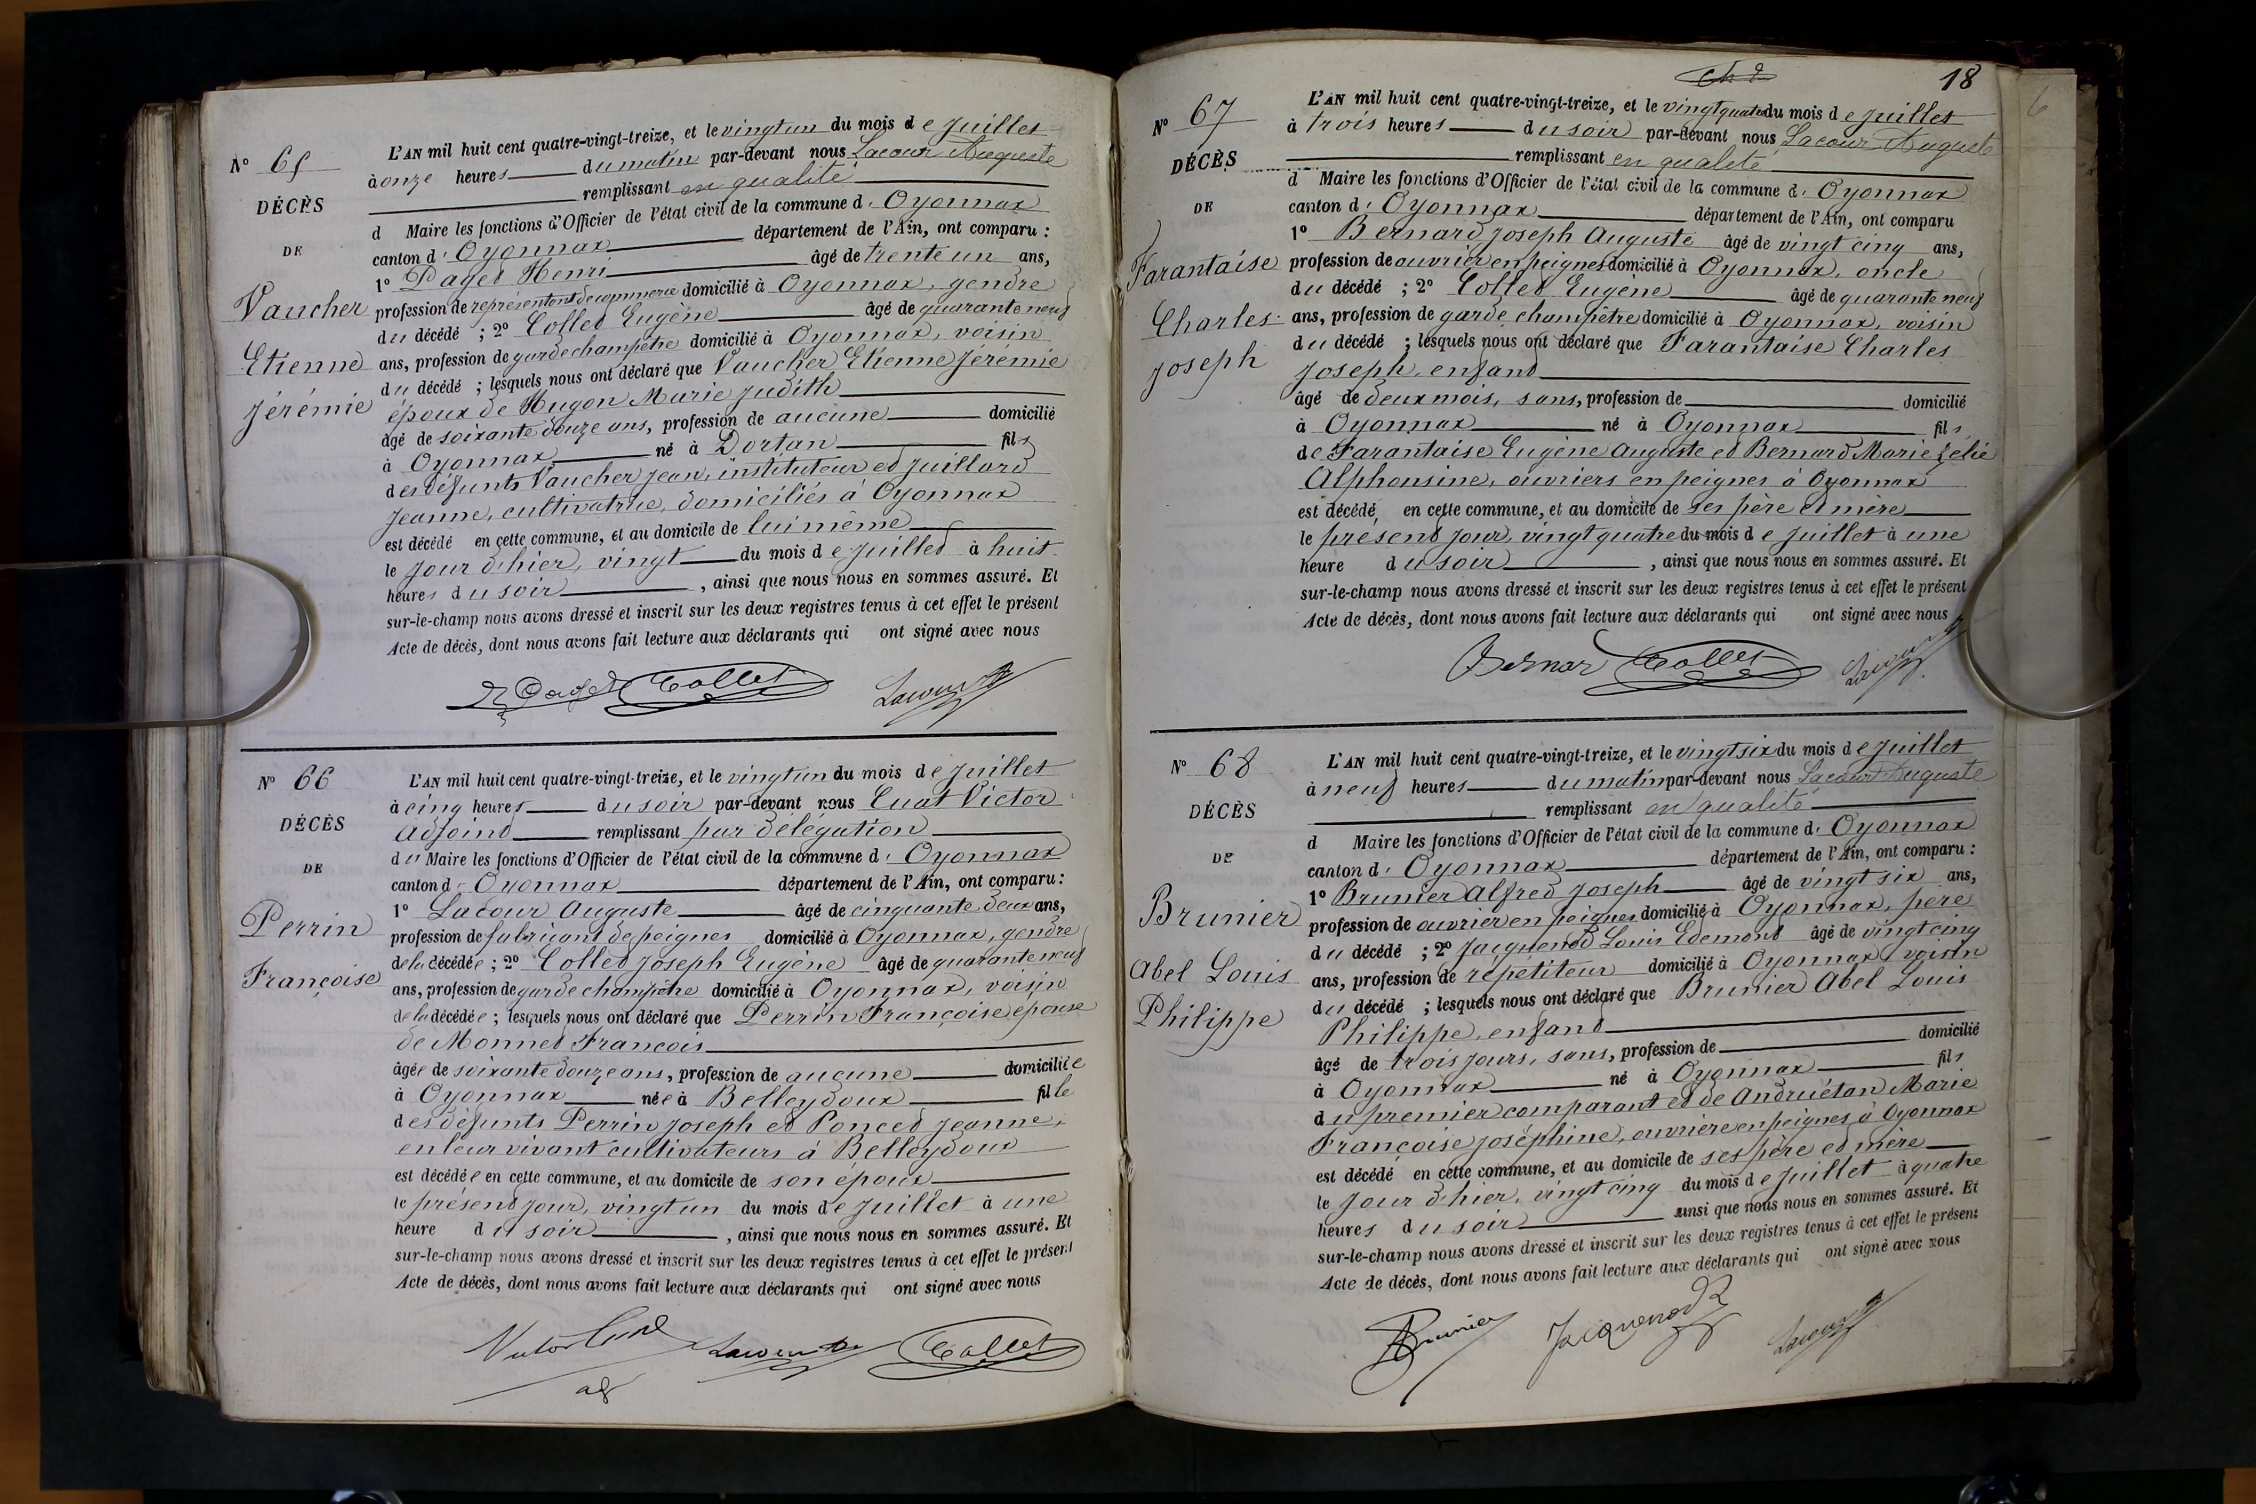 Nº 65
DÉCÈS
DE
Vaucher
Etienne
Jérémie
L'AN mil huit cent quatre-vingt-treize, et le vingt un du mois de Juillet
à onze heures du matin par-devant nous Lacour Auguste
remplissant en qualité
d Maire les fonctions d'Officier de l'état civil de la commune d'Oyonnax
canton d'Oyonnax département de l'Ain, ont comparu :
1º Paget Henri âgé de trente un ans,
profession de représentant de commerce domicilié à Oyonnax, gendre
du décédé ; 2º Collet Eugène âgé de quarante neuf
ans, profession de garde champêtre domicilié à Oyonnax, voisin
du décédé ; lesquels nous ont déclaré que Vaucher Etienne Jérémie
époux de Hugon Marie Judith
âgé de soixante douze ans, profession de aucune domicilié
à Oyonnax né à Dortan fils
des défunts Vaucher Jean, instituteur et Juillard
Jeanne, cultivatrice, domiciliés à Oyonnax
est décédé en cette commune, et au domicile de lui même
le jour d'hier, vingt du mois de Juillet à huit
heures du soir, ainsi que nous nous en sommes assuré. Et
sur-le-champ nous avons dressé et inscrit sur les deux registres tenus à cet effet le présent
Acte de décès, dont nous avons fait lecture aux déclarants qui ont signé avec nous
Paget Collet Lacour
Nº 66
DÉCÈS
DE
Perrin
Françoise
L'AN mil huit cent quatre-vingt-treize, et le vingt un du mois de Juillet
à cinq heures du soir par-devant nous Cuat Victor
adjoint remplissant par délégation
du Maire les fonctions d'Officier de l'état civil de la commune d'Oyonnax
canton d'Oyonnax département de l'Ain, ont comparu :
1º Lacour Auguste âgé de cinquante deux ans,
profession de fabricant de peignes domicilié à Oyonnax, gendre
de la décédée ; 2º Collet Joseph Eugène âgé de quarante neuf
ans, profession de garde champêtre domicilié à Oyonnax, voisin
de la décédée ; lesquels nous ont déclaré que Perrin Françoise épouse
de Monnet François
âgée de soixante douze ans, profession de aucune domiciliée
à Oyonnax née à Belleydoux fille
des défunts Perrin Joseph et Poncet Jeanne,
en leur vivant cultivateurs à Belleydoux
est décédée en cette commune, et au domicile de son époux
le présent jour, vingt un du mois de Juillet à une
heure du soir, ainsi que nous nous en sommes assuré. Et
sur-le-champ nous avons dressé et inscrit sur les deux registres tenus à cet effet le présent
Acte de décès, dont nous avons fait lecture aux déclarants qui ont signé avec nous
Victor Cuat Lacour Collet
adj
18
Nº 67
DÉCÈS
DE
Tarantaise
Charles
Joseph
L'AN mil huit cent quatre-vingt-treize, et le vingt quatre du mois de Juillet
à trois heures du soir par-devant nous Lacour Auguste
remplissant en qualité
d Maire les fonctions d'Officier de l'état civil de la commune d'Oyonnax
canton d'Oyonnax département de l'Ain, ont comparu
1º Bernard Joseph Auguste âgé de vingt cinq ans,
profession de ouvrier en peignes domicilié à Oyonnax, oncle
du décédé ; 2º Collet Eugène âgé de quarante neuf
ans, profession de garde champêtre domicilié à Oyonnax, voisin
du décédé ; lesquels nous ont déclaré que Tarantaise Charles
Joseph, enfant
âgé de deux mois, sans, profession de domicilié
à Oyonnax né à Oyonnax fils
de Tarantaise Eugène Auguste et Bernard Marie Zélie
Alphonsine, ouvriers en peignes à Oyonnax
est décédé en cette commune, et au domicile de ses père et mère
le présent jour, vingt quatre du mois de Juillet à une
heure du soir, ainsi que nous nous en sommes assuré. Et
sur-le-champ nous avons dressé et inscrit sur les deux registres tenus à cet effet le présent
Acte de décès, dont nous avons fait lecture aux déclarants qui ont signé avec nous
Bernar Collet Lacour
Nº 68
DÉCÈS
DE
Brunier
Abel Louis
Philippe
L'AN mil huit cent quatre-vingt-treize, et le vingt six du mois de Juillet
à neuf heures du matin par-devant nous Lacour Auguste
remplissant en qualité
d Maire les fonctions d'Officier de l'état civil de la commune d'Oyonnax
canton d'Oyonnax département de l'Ain, ont comparu :
1º Brunier Alfred Joseph âgé de vingt six ans,
profession de ouvrier en peignes domicilié à Oyonnax, père
du décédé ; 2º Jacquenod Louis Edemond âgé de vingt cinq
ans, profession de répétiteur domicilié à Oyonnax, voisin
du décédé ; lesquels nous ont déclaré que Brunier Abel Louis
Philippe, enfant
âgé de trois jours, sans, profession de domicilié
à Oyonnax né à Oyonnax fils
du premier comparant et de Andruétan Marie
Françoise Joséphine, ouvrière en peignes à Oyonnax
est décédé en cette commune, et au domicile de ses père et mère
le jour d'hier, vingt cinq du mois de Juillet à quatre
heures du soir ainsi que nous nous en sommes assuré. Et
sur-le-champ nous avons dressé et inscrit sur les deux registres tenus à cet effet le présent
Acte de décès, dont nous avons fait lecture aux déclarants qui ont signé avec nous
Brunier Jacquenod Lacour